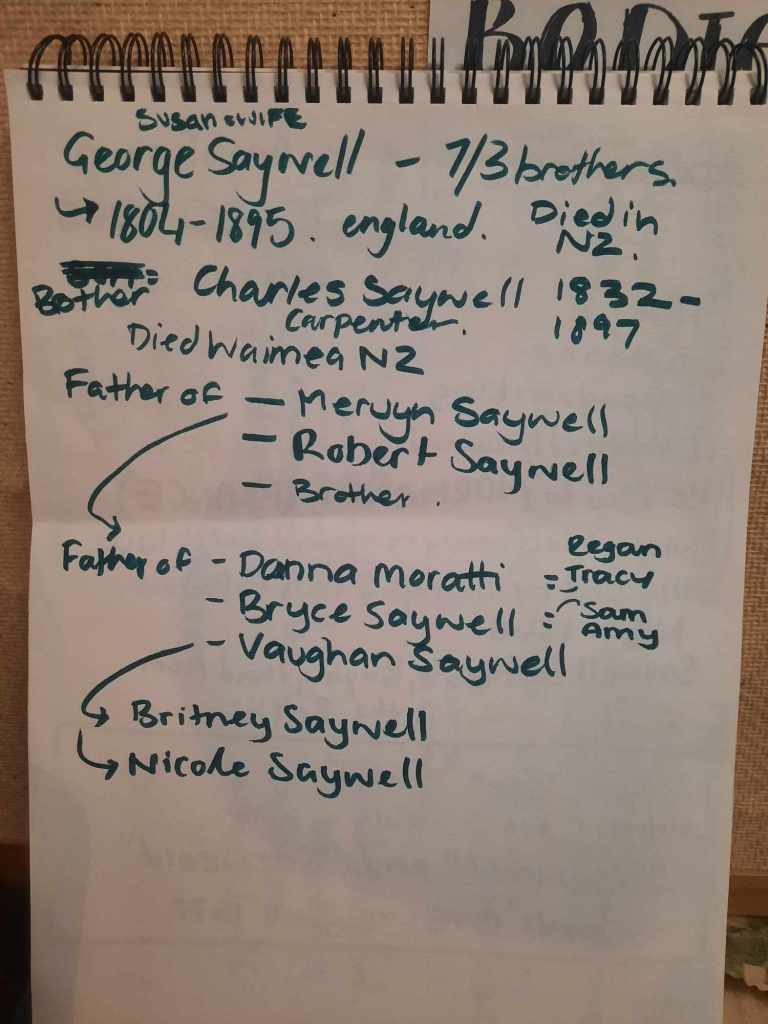 BODIC
Susan & WIFE
George Saywell – 1/3 brothers.
↳ 1804-1895. england. Died in NZ.
Bother = Charles Saywell 1832-1897
Carpenter.
Died Waimea NZ
Father of — Mervyn Saywell
— Robert Saywell
— Brother.
Father of - Danna Moratti = Regan Tracy
- Bryce Saywell = Sam Amy
- Vaughan Saywell
→ Britney Saywell
→ Nicole Saywell